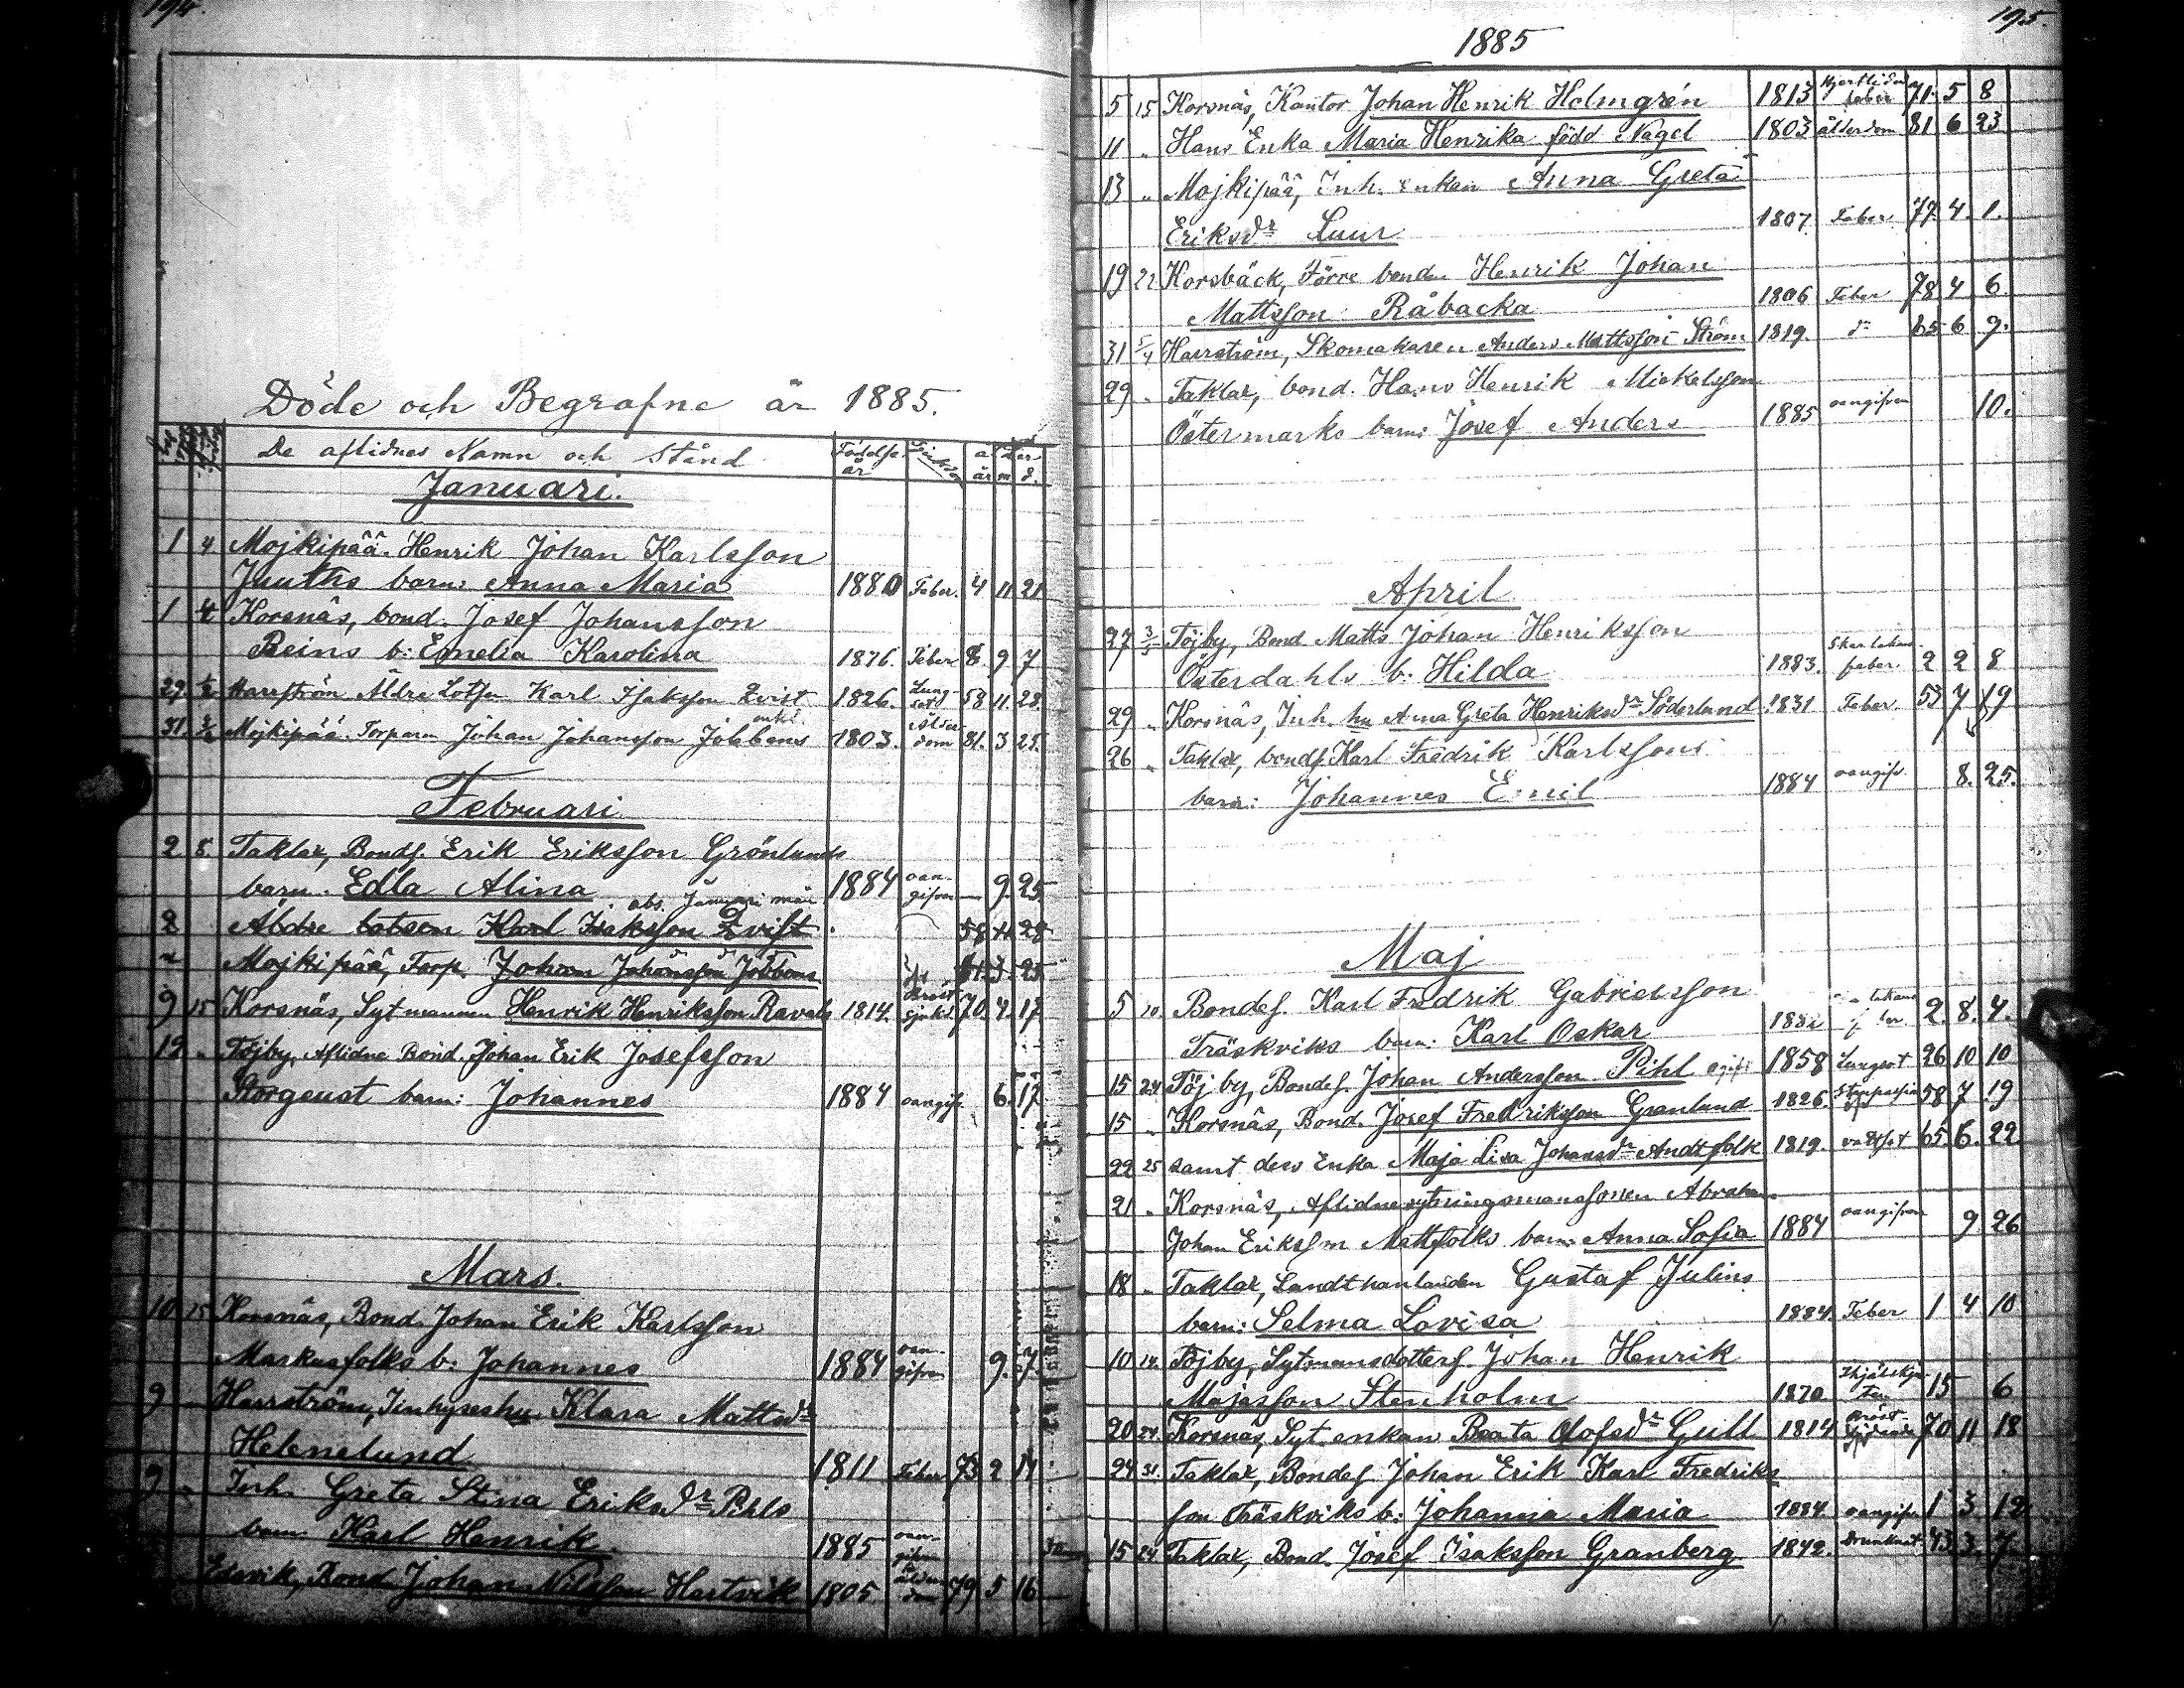 194.
Döde och Begrafne år 1885.
De aflidnes Namn och Stånd Födelse år år m d.
Januari.
1 4 Mojkipää. Henrik Johan Karlsson
Juuths barn: Anna Maria 1880 Feber. 4 11 21
1 4 Korsnäs, bond. Josef Johansson
Reins b: Emelia Karolina 1876. Feber 8. 9 7
29. 1/2 Harrström Äldre Lotsen Karl Isaksson Qvist 1826. Lungsot 58 11. 28.
31. Mojkipää. Torparn Johan Johansson Jobbens enkl. 1803. Ålderdom 81. 3 25.
Februari
2 8. Taklax, Bonds. Erik Eriksson Grönlunds
barn. Edla Alina 1884 oangifven — 9. 25.
obs. Januari mån
8 Äldre lotsen Karl Isaksson Qvist 58 11. 28
Mojkipää, Torp. Johan Johansson Jobbens 81. 3. 25.
9 15 Korsnäs, Sytmannen Henrik Henriksson Ravals 1814. Bröstsjukd. 70. 4. 17
12 " Töjby, Aflidne Bond. Johan Erik Josefsson
Storgeust barn: Johannes 1884 oangif. 6. 17
Mars.
10 15 Korsnäs, Bond. Johan Erik Karlsson
Markusfolks b: Johannes 1884 oangifven 9. 7.
9 " Harrström, Inhyseshu. Klara Mattsdr
Helenelund 1811 Feber 73 2 14
9 " Inh. Greta Stina Eriksdr Pihls
barn Karl Henrik. 1885 oangifven
Edsvik, Bond. Johan Nilsson Hertvik 1805 ålderdom 79 5 16
195.
1885
5 15 Korsnäs, Kantor Johan Henrik Holmgrén 1813 feber 71. 5 8
11 " Hans Enka Maria Henrika född Nagel 1803 ålderdom 81 6 23
13 " Mojkipää, Inh. enkan Anna Greta
Eriksdr Luur 1807 Feber 77. 4. 1.
19 22 Korsbäck, Förre bonden Henrik Johan
Mattsson Råbacka 1806 Feber 78 4 6.
31 5/4 Harrström, Skomakaren Anders Mattsson Ström 1819. do 65 6. 9.
29 " Taklax, bond. Hans Henrik Mickelsson
Östermarks barn: Josef Anders 1885 oangifven 10.
April
27 3/5 Töjby, Bond. Matts Johan Henriksson
Österdahls b. Hilda 1883. Skarlakansfeber. 2 2 8
29 " Korsnäs, Inh. hu Anna Greta Henriksdr Söderlund 1831 Feber 53 7 19
26 " Taklax, bonds. Karl Fredrik Karlssons
barn: Johannes Emil 1884 oangifv. 8. 25.
Maj
5 10. Bondes. Karl Fredrik Gabrielsson
Träskviks barn: Karl Oskar 2. 8. 4.
15 24 Töjby, Bondes. Johan Andersson Pihl ogift 1858 Lungsot 26 10 10
15 " Korsnäs, Bond. Josef Fredriksson Granlund 1826. 58 7 19
22 25 samt dess Enka Maja Lisa Johansdr Andtfolk 1819. vattsot 65. 6. 22.
21 " Korsnäs, Aflidne sytningsmanssonen Abraham
Johan Eriksson Mattsfolks barn: Anna Sofia 1884 oangifven 9. 26
18 " Taklax, Landthandlanden Gustaf Julins
barn: Selma Lovisa 1884. Feber 1 4 10
10 14. Töjby, Sytmansdotters. Johan Henrik
Majasson Stenholm 1870. 15 6
20 24. Korsnäs, Syt. enkan Beata Olofsdr Gull 1814 70 11 18
24 31. Taklax, Bondes. Johan Erik Karl Fredriks
son Träskviks b: Johanna Maria 1884. oangifv. 1 3. 12
15 24 Taklax, Bond. Josef Isaksson Granberg 1842. Drunknat 43. 3. 7.